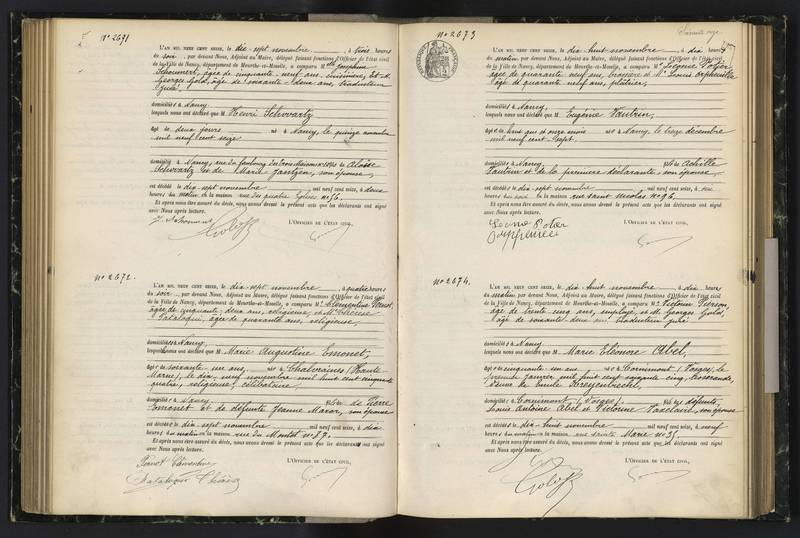 No 2671
L'AN MIL NEUF CENT SEIZE, le dix-sept novembre, à trois heures
du soir, par devant Nous, Adjoint au Maire, délégué faisant fonctions d'Officier de l'état civil
de la Ville de Nancy, département de Meurthe-et-Moselle, a comparu Mme Joséphine
âgée de cinquante-neuf ans, cuisinière, et M.
Georges Golé, âgé de soixante-deux ans, traducteur
juré
domiciliés à Nancy
lesquels nous ont déclaré que M Henri Schwartz
âgé de deux jours né à Nancy, le quinze novembre
mil neuf cent seize
domicilié à Nancy, rue du faubourg des Trois Maisons fils de Aloïse
Schwartz et de Marie Jantzen, son épouse,
est décédé le dix-sept novembre mil neuf cent seize, à deux
heures du matin en la maison rue des quatre Eglises no 56.
Et après nous être assuré du décès, nous avons dressé le présent acte que les déclarants ont signé
avec Nous après lecture.
L'OFFICIER DE L'ÉTAT CIVIL,
No 2672.
L'AN MIL NEUF CENT SEIZE, le dix-sept novembre, à quatre heures
du soir, par devant Nous, Adjoint au Maire, délégué faisant fonctions d'Officier de l'état civil
de la Ville de Nancy, département de Meurthe-et-Moselle, a comparu Mme Clémentine
âgée de cinquante-deux ans, religieuse, et Mme Thérèse
âgée de quarante ans, religieuse,
domiciliés à Nancy
lesquels nous ont déclaré que M Marie Augustine Emonet
âgé de soixante un ans, né à Chalvraines (Haute
Marne), le dix-neuf novembre mil huit cent cinquante
quatre, religieuse, célibataire,
domicilié à Nancy fils de Pierre
Emonet et de défunte Jeanne, son épouse
est décédé le dix-sept novembre mil neuf cent seize, à dix
heures du matin en la maison rue du Montet no 87.
Et après nous être assuré du décès, nous avons dressé le présent acte que les déclarants ont signé
avec Nous après lecture.
L'OFFICIER DE L'ÉTAT CIVIL,
No 2673
L'AN MIL NEUF CENT SEIZE, le dix-huit novembre, à dix heures
du matin, par devant Nous, Adjoint au Maire, délégué faisant fonctions d'Officier de l'état civil
de la Ville de Nancy, département de Meurthe-et-Moselle, a comparu Mme
âgée de quarante neuf ans, brodeuse et M. Louis
âgé de quarante neuf ans, plâtrier,
domiciliés à Nancy,
lesquels nous ont déclaré que M Eugénie Vautrin,
âgé de huit ans et onze mois né à Nancy, le treize décembre
mil neuf cent sept.
domicilié à Nancy fils de Achille
Vautrin et de la première déclarante, son épouse,
est décédé le dix-sept novembre mil neuf cent seize, à
heures du soir en la maison rue Saint Nicolas no 96.
Et après nous être assuré du décès, nous avons dressé le présent acte que les déclarants ont signé
avec Nous après lecture.
L'OFFICIER DE L'ÉTAT CIVIL,
No 2674.
L'AN MIL NEUF CENT SEIZE, le dix-huit novembre, à dix heures
du matin, par devant Nous, Adjoint au Maire, délégué faisant fonctions d'Officier de l'état civil
de la Ville de Nancy, département de Meurthe-et-Moselle, a comparu M. Victorin Pierson
âgé de trente cinq ans, employé, et M. Georges Golé,
âgé de soixante-deux ans, traducteur juré
domiciliés à Nancy
lesquels nous ont déclaré que M Marie Eléonore Abel,
âgé de cinquante un ans né à Cornimont (Vosges), le
premier janvier mil huit cent soixante cinq, tisserande,
veuve de Emile
domicilié à Cornimont (Vosges) fils des défunts,
Louis Antoine Abel et Victorine Vaxelaire, son épouse
est décédé le dix-huit novembre mil neuf cent seize, à neuf
heures du matin en la maison rue Sainte Marie no 3.
Et après nous être assuré du décès, nous avons dressé le présent acte que les déclarants ont signé
avec Nous après lecture.
L'OFFICIER DE L'ÉTAT CIVIL,